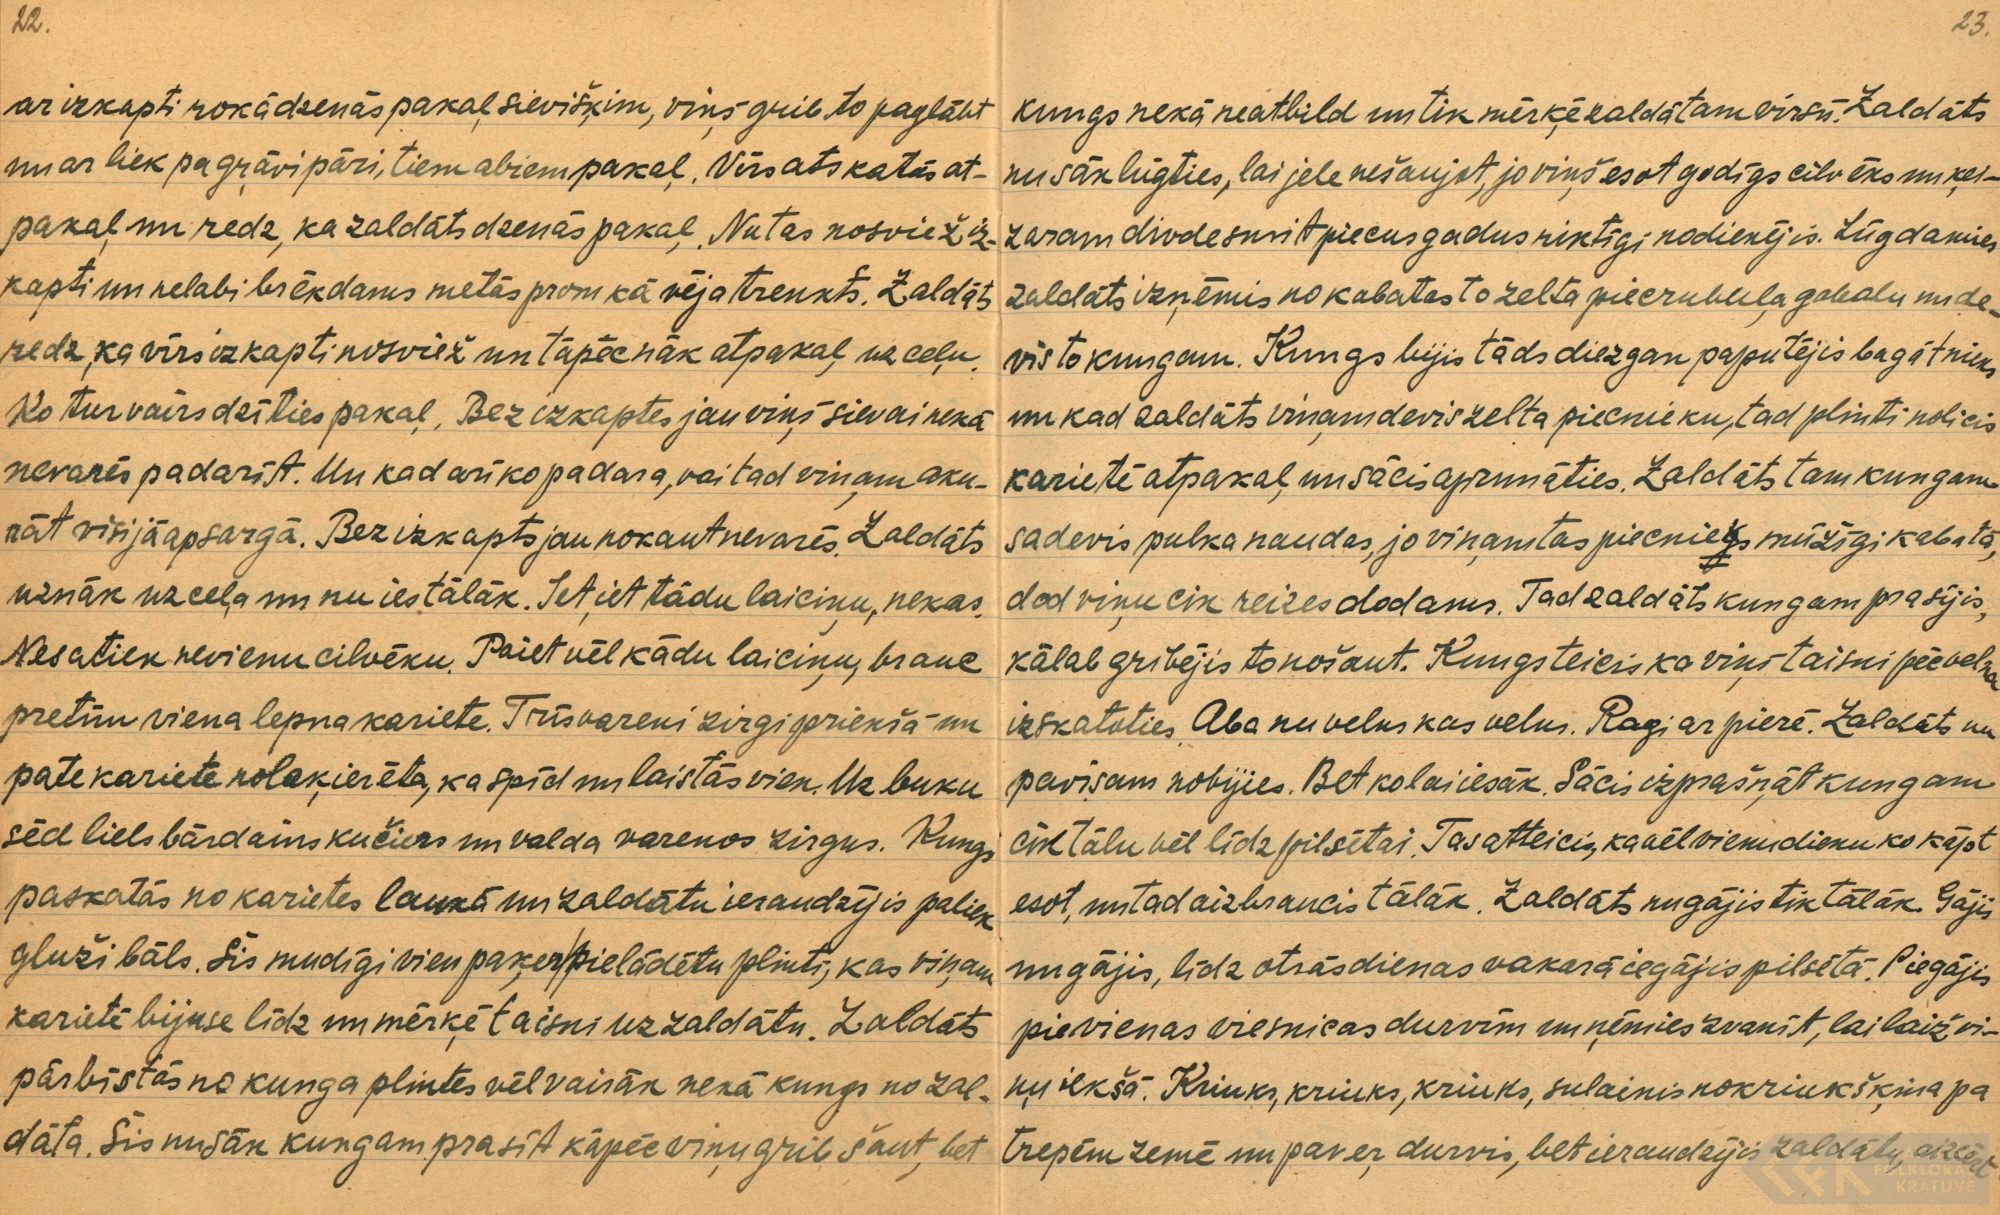 22.
ar izkapti rokā dzenās pakaļ sieviškim, viņš grib to paglābt
un ar liek pa grāvi pāri, tiem abiem pakaļ. Vīrs atskatās at-
pakaļ un redz, ka zaldāts dzenās pakaļ. Nu tas nosviež iz-
kapti un nelabi brēkdams metās prom kā vēja trenkts. Zaldāts
redz, ka vīrs izkapti nosviež un tāpēc nāk atpakaļ uz ceļu.
Ko tur vairs dzīties pakaļ. Bez izkaptes jau viņš sievai nekā
nevarēs padarīt. Un kad arī ko padara, vai tad viņam aku-
rāt visi jāapsargā. Bez izkapts jau nokaut nevarēs. Zaldāts
uznāk uz ceļa un nu ies tālāk. Iet, iet tādu laiciņu, nekas.
Nesatiek nevienu cilvēku. Paiet vēl kādu laiciņu, brauc
pretim viena lepna kariete. Trīs vareni zirgi priekšā un
pate kariete nolaķierēta, ka spīd un laistās vien. Uz buku
sēd liels bārdains kučiers un valda varenos zirgus. Kungs
paskatās no karietes laukā un zaldātu ieraudzījis paliek
gluži bāls. Šis mudīgi vien paķer pielādētu plinti, kas viņam
karietē bijuse līdz un mērķē taisni uz zaldātu. Zaldāts
pārbīstās no kunga plintes vēl vairāk nekā kungs no zal-
dāta. Šis nu sāk kungam prasīt kāpēc viņu grib šaut, bet
23.
kungs nekā neatbild un tik mērķē zaldātam virsū. Zaldāts
nu sāk lūgties, lai jele nešaujot, jo viņš esot godīgs cilvēks un ķei-
zaram divdesmit piecus gadus riktīgi nodienējis. Lūgdamies
zaldāts izņēmis no kabatas to zelta piecrubuļa gabalu un de-
vis to kungam. Kungs bijis tāds diezgan paputējis bagātnieks
un kad zaldāts viņam devis zelta piecnieku, tad plinti nolicis
karietē atpakaļ un sācis aprunāties. Zaldāts tam kungam
sadevis pulka naudas, jo viņam tas piecnieks mūžīgi kabatā,
dod viņu cik reizes dodams. Tad zaldāts kungam prasījis,
kālab gribējis to nošaut. Kungs teicis ka viņš taisni pēc velna
izskatoties. Aba nu velns kas velns. Ragi ar pierē. Zaldāts nu
pavisam nobijies. Bet ko lai iesāk. Sācis izprašņāt kungam
cik tālu vēl līdz pilsētai. Tas atteicis, ka vēl vienu dienu ko kāpt
esot, un tad aizbraucis tālāk. Zaldāts nu gājis tik tālāk. Gājis
nu gājis, līdz otrās dienas vakarā iegājis pilsētā. Piegājis
pie vienas viesnicas durvīm un ņēmies zvanīt, lai laiž vi-
ņu iekšā. Kriuks, kriuks, kriuks, sulainis nokriukšķina pa
trepēm zemē un paver durvis, bet ieraudzījis zaldātu, aizcērt
FOLKLORAS
KRATUVE